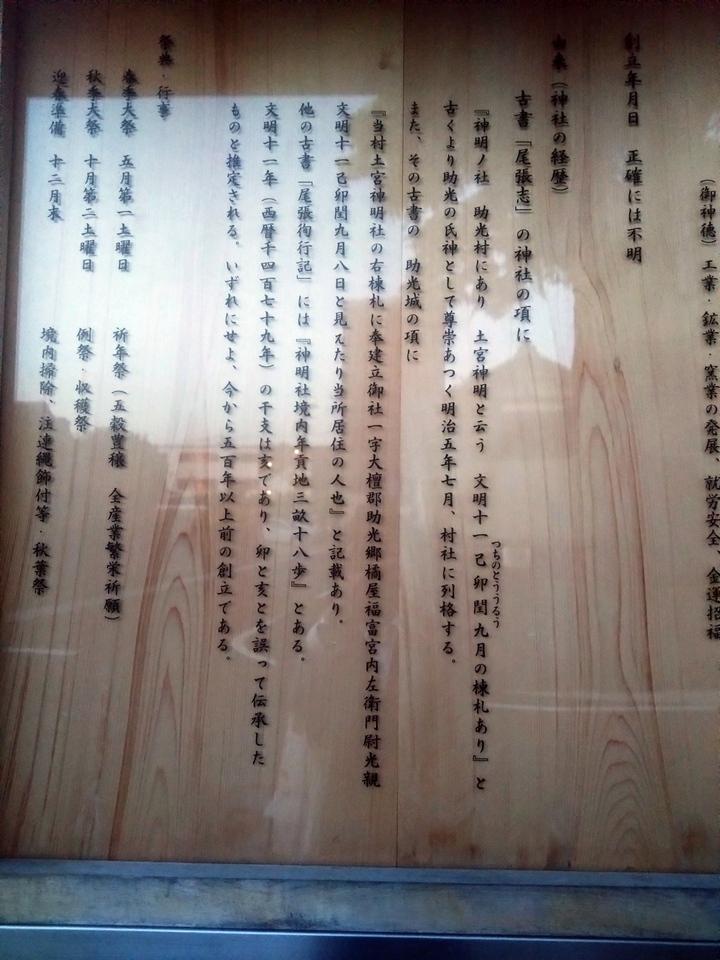 (御神徳) 工業・鉱業・窯業の発展、就労安全 金運招福
創立年月日 正確には不明
由来(神社の経歴)
古書「尾張志」の神社の項に
『神明ノ社 助光村にあり 土宮神明と云う 文明十一己卯閏九月の棟札あり』と
つちのとううるう
古くより助光の氏神として尊崇あつく明治五年七月、村社に列格する。
また、その古書の 助光城の項に
『当村土宮神明社の右棟札に奉建立御社一宇大檀郡助光郷橘屋福富宮内左衛門尉光親
文明十一己卯閏九月八日と見えたり当所居住の人也』と記載あり。
他の古書「尾張徇行記」には『神明社境内年貢地三畝十八歩』とある。
文明十一年(西暦千四百七十九年)の干支は亥であり、卯と亥とを誤って伝承した
ものと推定される。いずれにせよ、今から五百年以上前の創立である。
祭典・行事
春季大祭 五月第一土曜日 祈年祭(五穀豊穣 全産業繁栄祈願)
秋季大祭 十月第二土曜日 例祭・収穫祭
迎春準備 十二月末 境内掃除、注連縄飾付等・秋葉祭